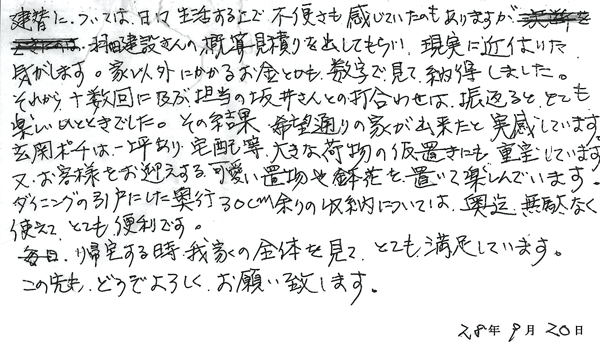 建替については、日々生活する上で不便さも感じていたのもありますが
羽田建設さんの概算見積りを出してもらい、現実に近付いた
気がします。家以外にかかるお金とかも、数字で見て、納得しました。
それから、十数回に及ぶ担当の坂井さんとの打合わせは、振返ると、とても
楽しいひとときでした。その結果、希望通りの家が出来たと実感しています。
玄関ポチは、一坪あり、宅配等、大きな荷物の仮置きにも、重宝しています。
又、お客様をお迎えする可愛い置物や鉢花を置いて楽しんでいます。
ダイニングの引戸にした奥行30cm余りの収納については、奥迄無駄なく
使えて、とても便利です。
毎日、帰宅する時、我家の全体を見て、とても満足しています。
この先も、どうぞよろしく、お願い致します。
28年9月20日